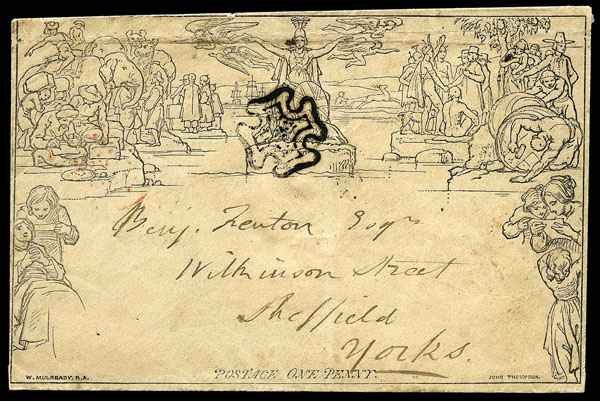 Benj. Fenton Esqr
Wilkinson Street
Sheffield
Yorks.
POSTAGE ONE PENNY.
W. MULREADY, R.A.
JOHN THOMPSON.